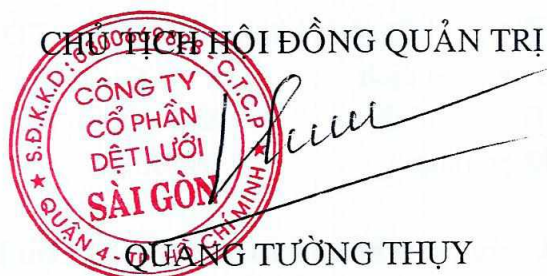 CHỦ TỊCH HỘI ĐỒNG QUẢN TRỊ
CÔNG TY
CỔ PHẦN
DỆT LƯỚI
SÀI GÒN
★ QUẬN 4 - TP. HỒ CHÍ MINH ★
QUANG TƯỜNG THỤY